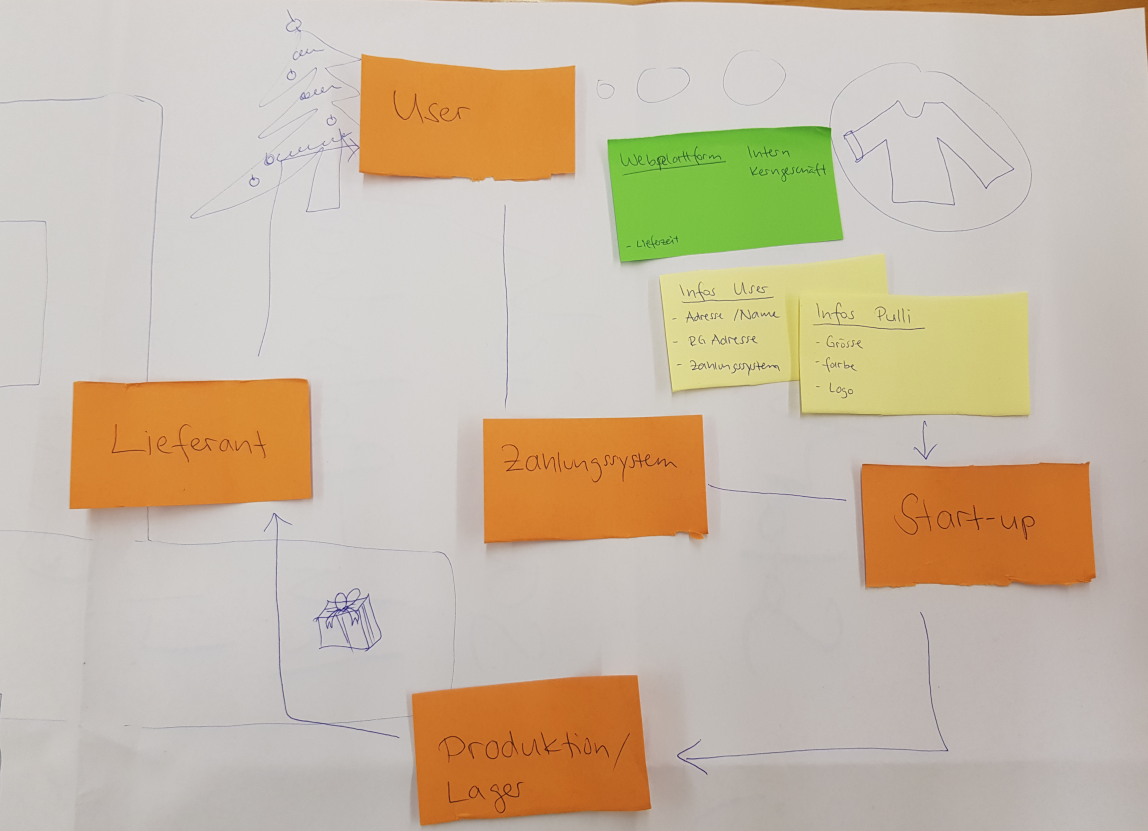 User
Webplattform
Intern
Kerngeschäft
- Lieferzeit
Infos User
- Adresse /Name
- RG Adresse
- Zahlungssystem
Infos Pulli
- Grösse
- farbe
- Logo
Lieferant
Zahlungssystem
Start-up
Produktion/
Lager